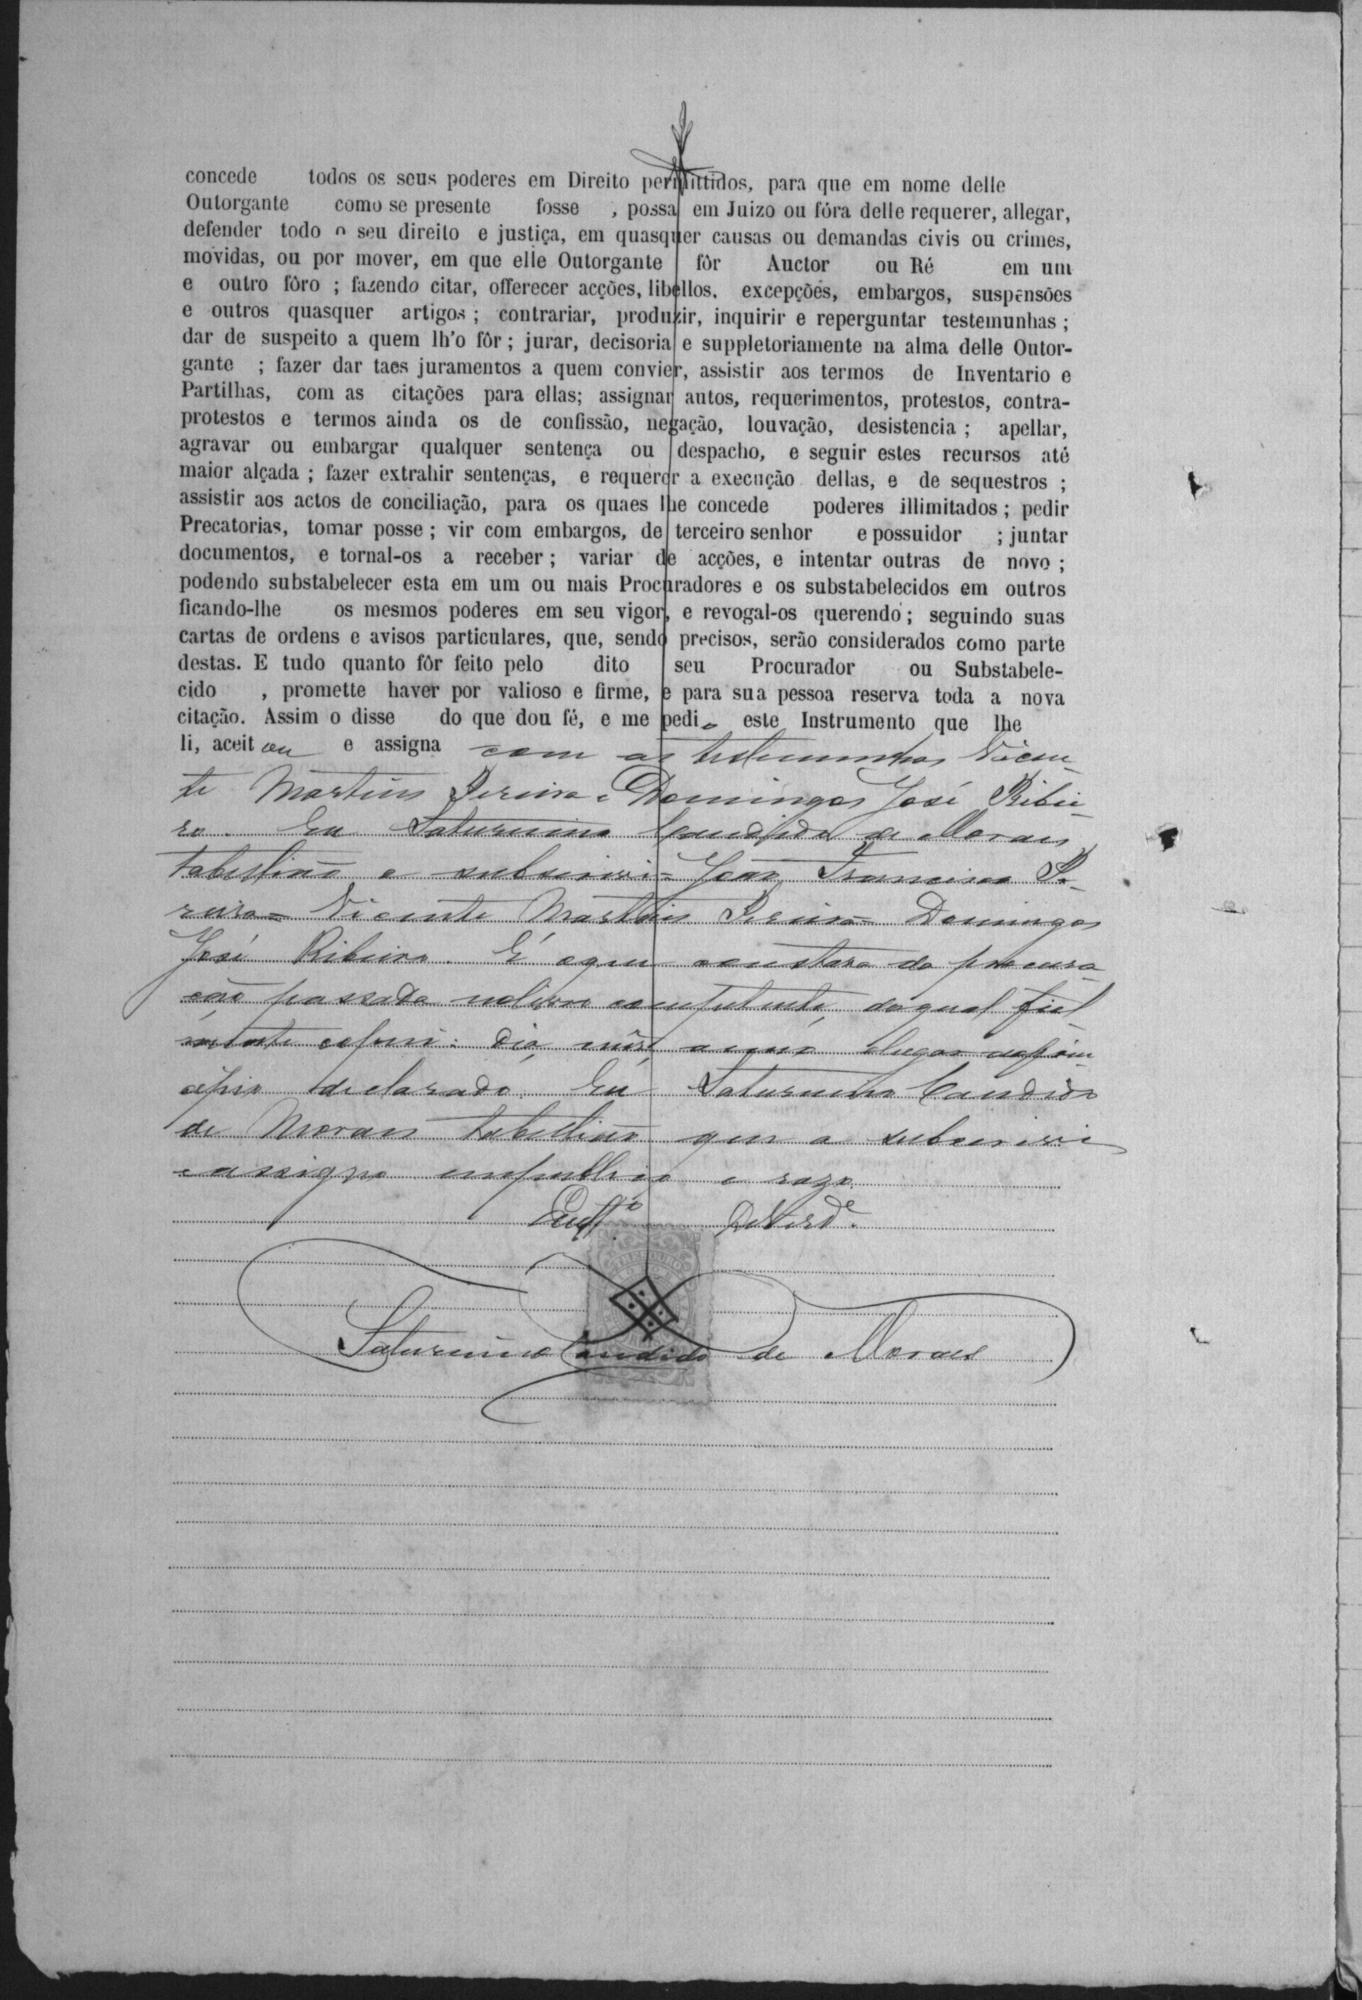 concede todos os seus poderes em Direito permittidos, para que em nome delle
Outorgante como se presente fosse , possa em Juizo ou fóra delle requerer, allegar,
defender todo o seu direito e justiça, em quasquer causas ou demandas civis ou crimes,
movidas, ou por mover, em que elle Outorgante fôr Auctor ou Ré em um
e outro fôro ; fazendo citar, offerecer acções, libellos, excepções, embargos, suspensões
e outros quasquer artigos ; contrariar, produzir, inquirir e reperguntar testemunhas ;
dar de suspeito a quem lh'o fôr ; jurar, decisoria e suppletoriamente na alma delle Outor-
gante ; fazer dar taes juramentos a quem convier, assistir aos termos de Inventario e
Partilhas, com as citações para ellas; assignar autos, requerimentos, protestos, contra-
protestos e termos ainda os de confissão, negação, louvação, desistencia ; apellar,
agravar ou embargar qualquer sentença ou despacho, e seguir estes recursos até
maior alçada ; fazer extrahir sentenças, e requerer a execução dellas, e de sequestros ;
assistir aos actos de conciliação, para os quaes lhe concede poderes illimitados ; pedir
Precatorias, tomar posse ; vir com embargos, de terceiro senhor e possuidor ; juntar
documentos, e tornal-os a receber ; variar de acções, e intentar outras de novo ;
podendo substabelecer esta em um ou mais Procuradores e os substabelecidos em outros
ficando-lhe os mesmos poderes em seu vigor, e revogal-os querendo ; seguindo suas
cartas de ordens e avisos particulares, que, sendo precisos, serão considerados como parte
destas. E tudo quanto fôr feito pelo dito seu Procurador ou Substabele-
cido , promette haver por valioso e firme, e para sua pessoa reserva toda a nova
citação. Assim o disse do que dou fé, e me pedio este Instrumento que lhe
li, aceitou e assigna com as testemunhas Vicen-
te Martins Pereira e Domingos José Ribei-
ro. Eu Saturnino Candido de Moraes
tabellião o subscrevi = João Francisco Pe-
reira = Vicente Martins Pereira = Domingos
José Ribeiro. É o que constava da procura
ção passada no livro competente, do qual fiel
mente copiei: dia, mês, anno, e lugar no prin
cipio declarado. Eu Saturnino Candido
de Moraes tabellião que o subscrevi
e assigno em publico e razo.
Em testº de Verdᵉ.
Saturnino Candido de Moraes